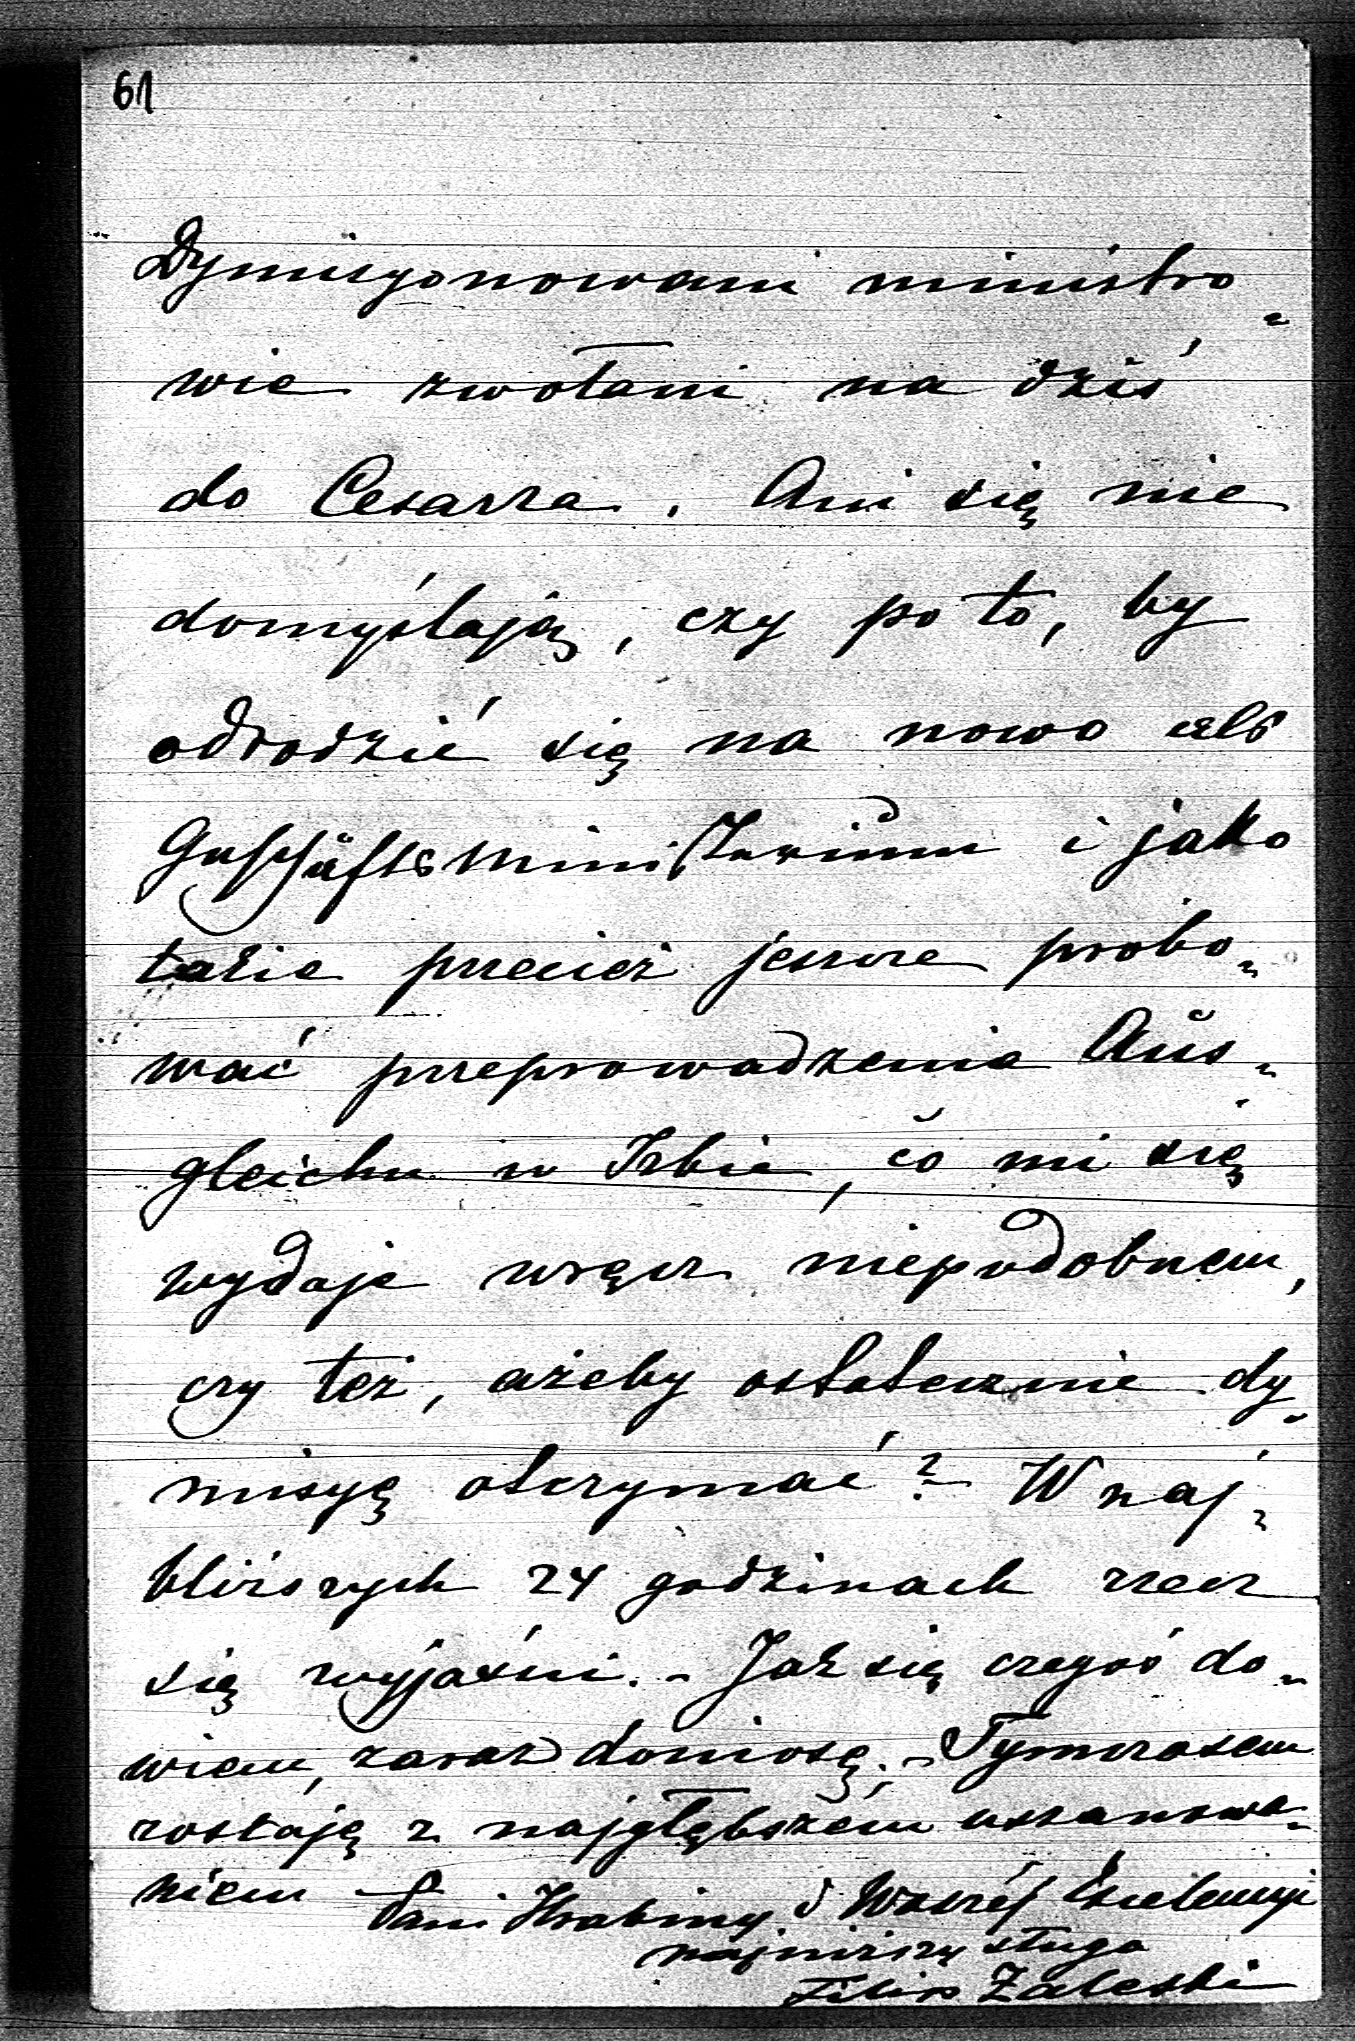 61
Dymisyonowani ministro-
wie zwołani na dziś
do Cesarza. Ani się nie
domyślają, czy po to, by
odrodzić się na nowo als
Geschäftsministerium i jako
takie przecież jeszcze probo-
wać przeprowadzenie Aus-
gleichu w Izbie, co mi się
wydaje wręcz niepodobnem,
czy też, ażeby ostatecznie dy-
misyę otrzymać? W naj-
bliższych 24 godzinach rzecz
się wyjaśni. - Jak się czegoś do-
wiem, zaraz doniosę. - Tymczasem
zostaję z najgłębszém uszanowa-
niem
Pani Hrabiny i Waszéj Excelencyi
najniższy sługa
Filip Zaleski